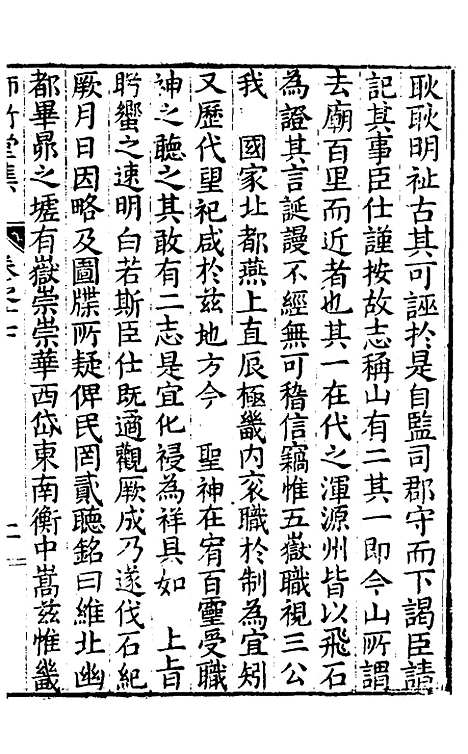 耿耿明祉古其可誣於是自監司郡守而下謁臣請
記其事臣仕謹按故志稱山有二其一即今山所謂
去廟百里而近者也其一在代之渾源州皆以飛石
為證其言誕謾不經無可稽信竊惟五嶽職視三公
我　國家北都燕上直辰極畿內衮職於制為宜矧
又歷代望祀咸於兹地方今　聖神在宥百靈受職
神之聽之其敢有二志是宜化祲為祥具如　上旨
肹蠁之速明白若斯臣仕既適觀厥成乃遂伐石紀
厥月日因略及圖牒所疑俾民罔貳聽銘曰維北幽
都畢昴之墟有嶽崇崇華西岱東南衡中嵩兹惟畿